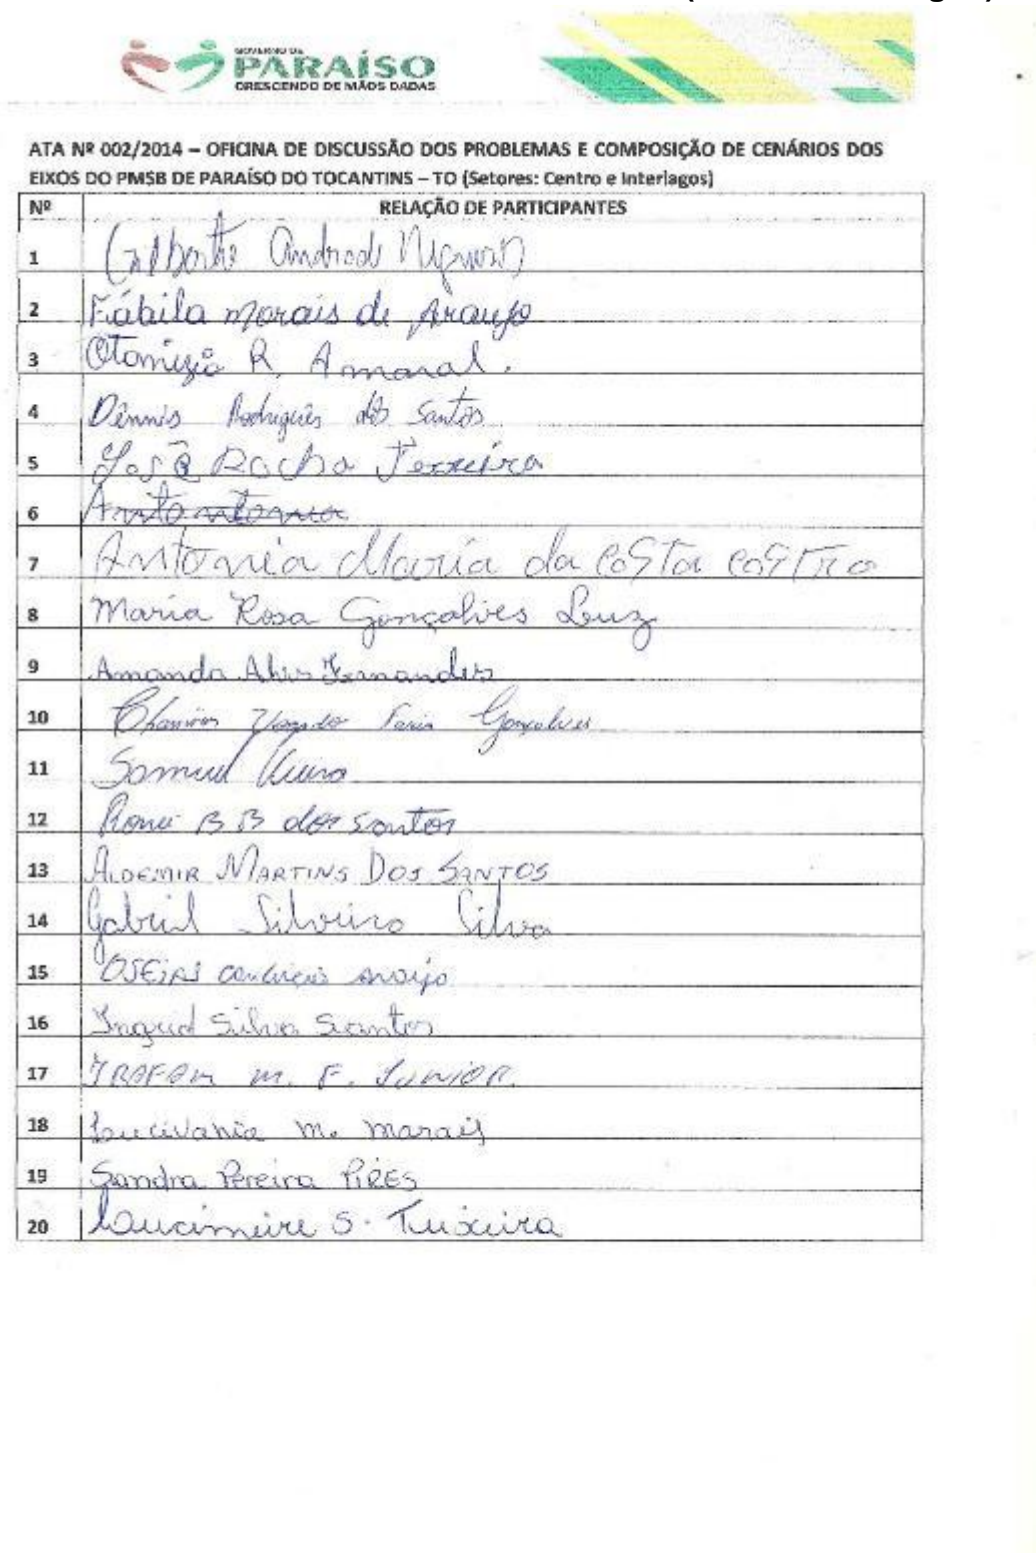 GOVERNO DE
PARAÍSO
CRESCENDO DE MÃOS DADAS
ATA Nº 002/2014 – OFICINA DE DISCUSSÃO DOS PROBLEMAS E COMPOSIÇÃO DE CENÁRIOS DOS
EIXOS DO PMSB DE PARAÍSO DO TOCANTINS – TO (Setores: Centro e Interlagos)
Nº RELAÇÃO DE PARTICIPANTES
1
2 Fábila Morais de Araujo
3 R. Amaral.
4 Dênnis Rodrigues dos Santos
5 José Rocha Ferreira
6
7 Antonia Maria da Costa Castro
8 Maria Rosa Gonçalves Luz
9 Amanda Alves Fernandes
10 Faria Gonçalves
11 Samuel Vieira
12 B B dos Santos
13 ALDEMIR MARTINS DOS SANTOS
14 Gabriel Silveira Silva
15 OSEIAS araujo
16 Ingrid Silva Santos
17 M. F. JUNIOR
18 Lucivania M. Marais
19 Sandra Pereira PIRES
20 Laucimeire S. Teixeira